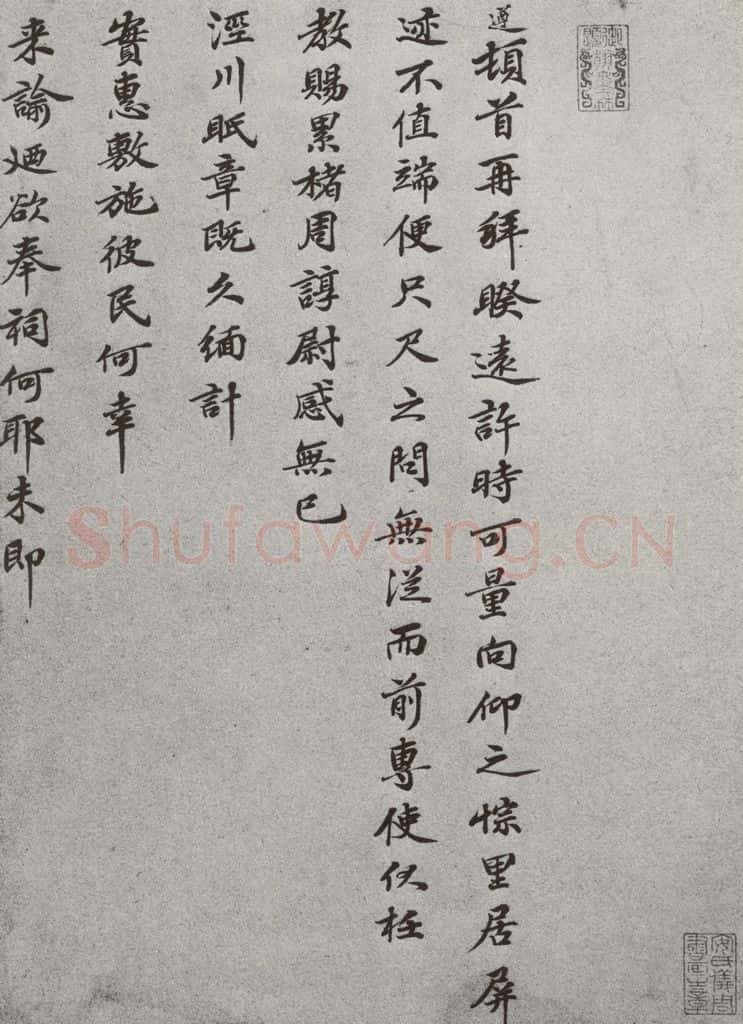 遵頓首再拜睽遠許時可量向仰之悰里居屏
迹不值端便只尺之問無從而前專使伏枉
教賜累楮周諄尉感無已
涇川眂章既久緬計
實惠敷施彼民何幸
来諭迺欲奉祠何耶未即
安氏儀周書畫之章
Shufawang.CN